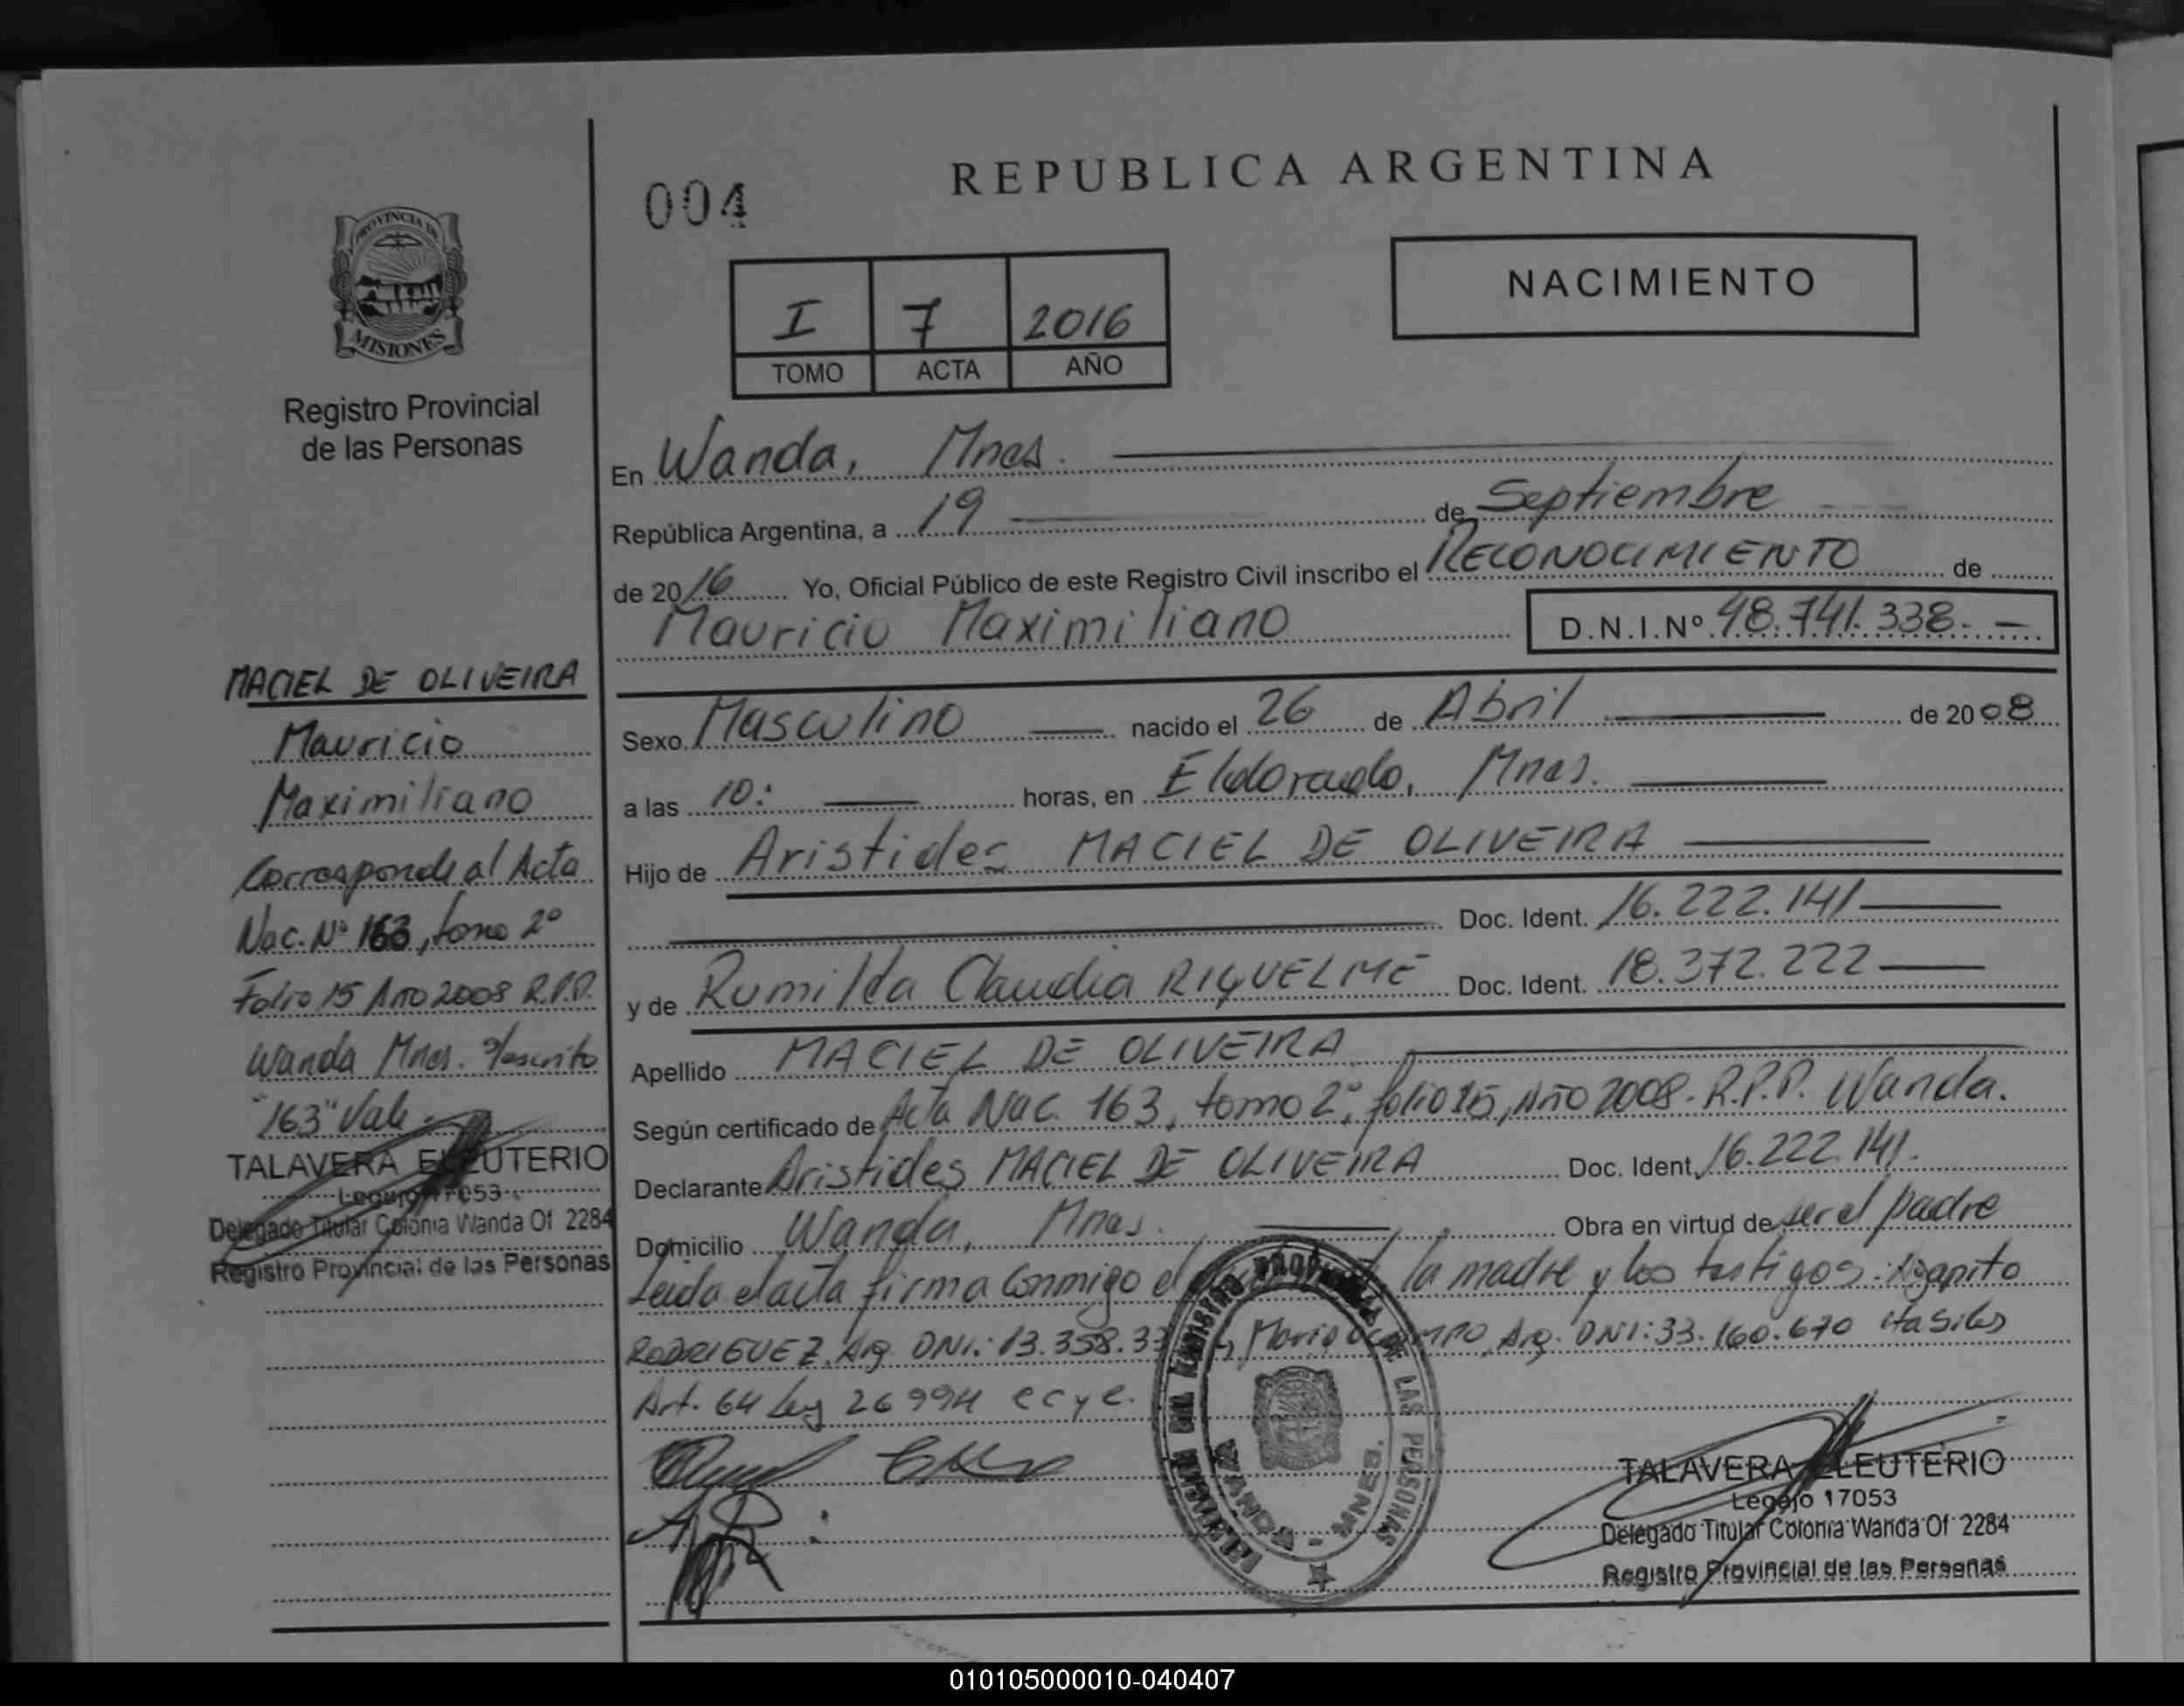 REPUBLICA ARGENTINA
004
NACIMIENTO
I 7 2016
TOMO ACTA AÑO
PROVINCIA DE
MISIONES
Registro Provincial
de las Personas
En Wanda, Mnes.
República Argentina, a 19 de Septiembre
de 2016 Yo, Oficial Público de este Registro Civil inscribo el RECONOCIMIENTO de
Mauricio Maximiliano D.N.I.Nº 48.741.338.-
Sexo Masculino nacido el 26 de Abril de 2008
a las 10: horas, en Eldorado, Mnes.
Hijo de Aristides MACIEL DE OLIVEIRA
Doc. Ident. 16.222.141
y de Rumilda Claudia RIQUELME Doc. Ident. 18.372.222
Apellido MACIEL DE OLIVEIRA
Según certificado de Acta Nac. 163, tomo 2º, folio 15, Año 2008. R.P.P. Wanda.
Declarante Aristides MACIEL DE OLIVEIRA Doc. Ident. 16.222.141.
Domicilio Wanda, Mnes. Obra en virtud de ser el padre
Leida el acta firma conmigo el la madre y los testigos: Agapito
RODRIGUEZ, Arg. DNI.: 13.358.33 Mario OCAMPO, Arg. DNI: 33.160.670
Art. 64 Ley 26994 CCyC.
MACIEL DE OLIVEIRA
Mauricio
Maximiliano
Corresponde al Acta
Nac. Nº 163, tomo 2º
Folio 15 Año 2008 R.P.P.
Wanda Mnes.
"163" Vale.
TALAVERA ELEUTERIO
Legajo 17053
Delegado Titular Colonia Wanda Of 2284
Registro Provincial de las Personas
DE LAS PERSONAS
WANDA - MNES.
TALAVERA ELEUTERIO
Legajo 17053
Delegado Titular Colonia Wanda Of 2284
Registro Provincial de las Personas
010105000010-040407